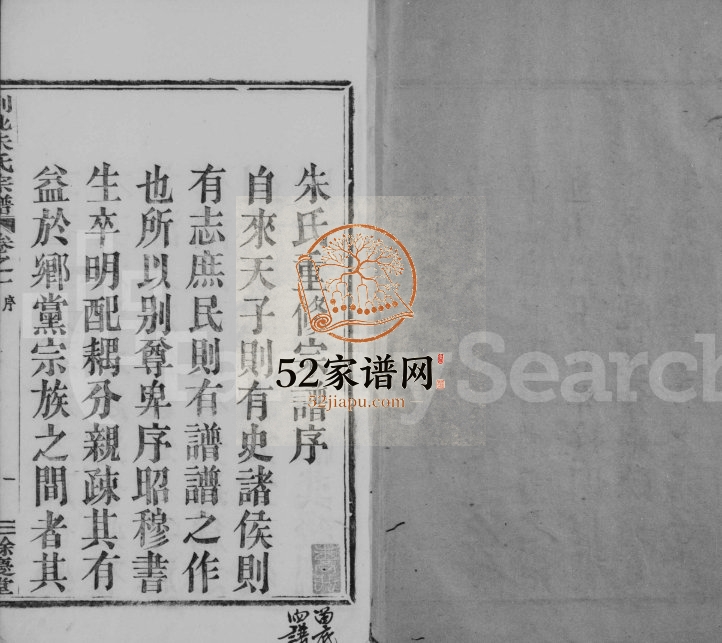 朱氏重修宗譜序
自來天子則有史諸侯則
有志庶民則有譜譜之作
也所以别尊卑序昭穆書
生卒明配耦分親疎其有
益於鄉黨宗族之間者其
朱氏宗譜
卷之一
序
一
餘慶堂
52家谱网
52jiapu.com
FamilySearch